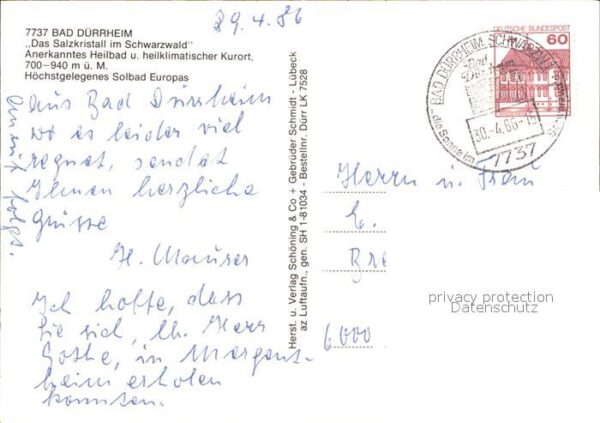 29.4.86
7737 BAD DÜRRHEIM
„Das Salzkristall im Schwarzwald"
Anerkanntes Heilbad u. heilklimatischer Kurort,
700–940 m ü. M.
Höchstgelegenes Solbad Europas
Aus Bad Dürrheim
wo es leider viel
regnet, sendet
Ihnen herzliche
Grüße
H. Mauser
Ich hoffe, dass
Sie sich, lb. Herr
Gothe, in Mergent-
heim erholen
konnten.
folgt.
Herst. u. Verlag Schöning & Co + Gebrüder Schmidt - Lübeck
az Luftaufn., gen. SH 1-81034 - Bestellnr. Dürr LK 7528
DEUTSCHE BUNDESPOST
60
BAD DÜRRHEIM SCHWARZW
30.-4.86-15
7737
Herrn u. Frau
E.
Bre
6000
privacy protection
Datenschutz